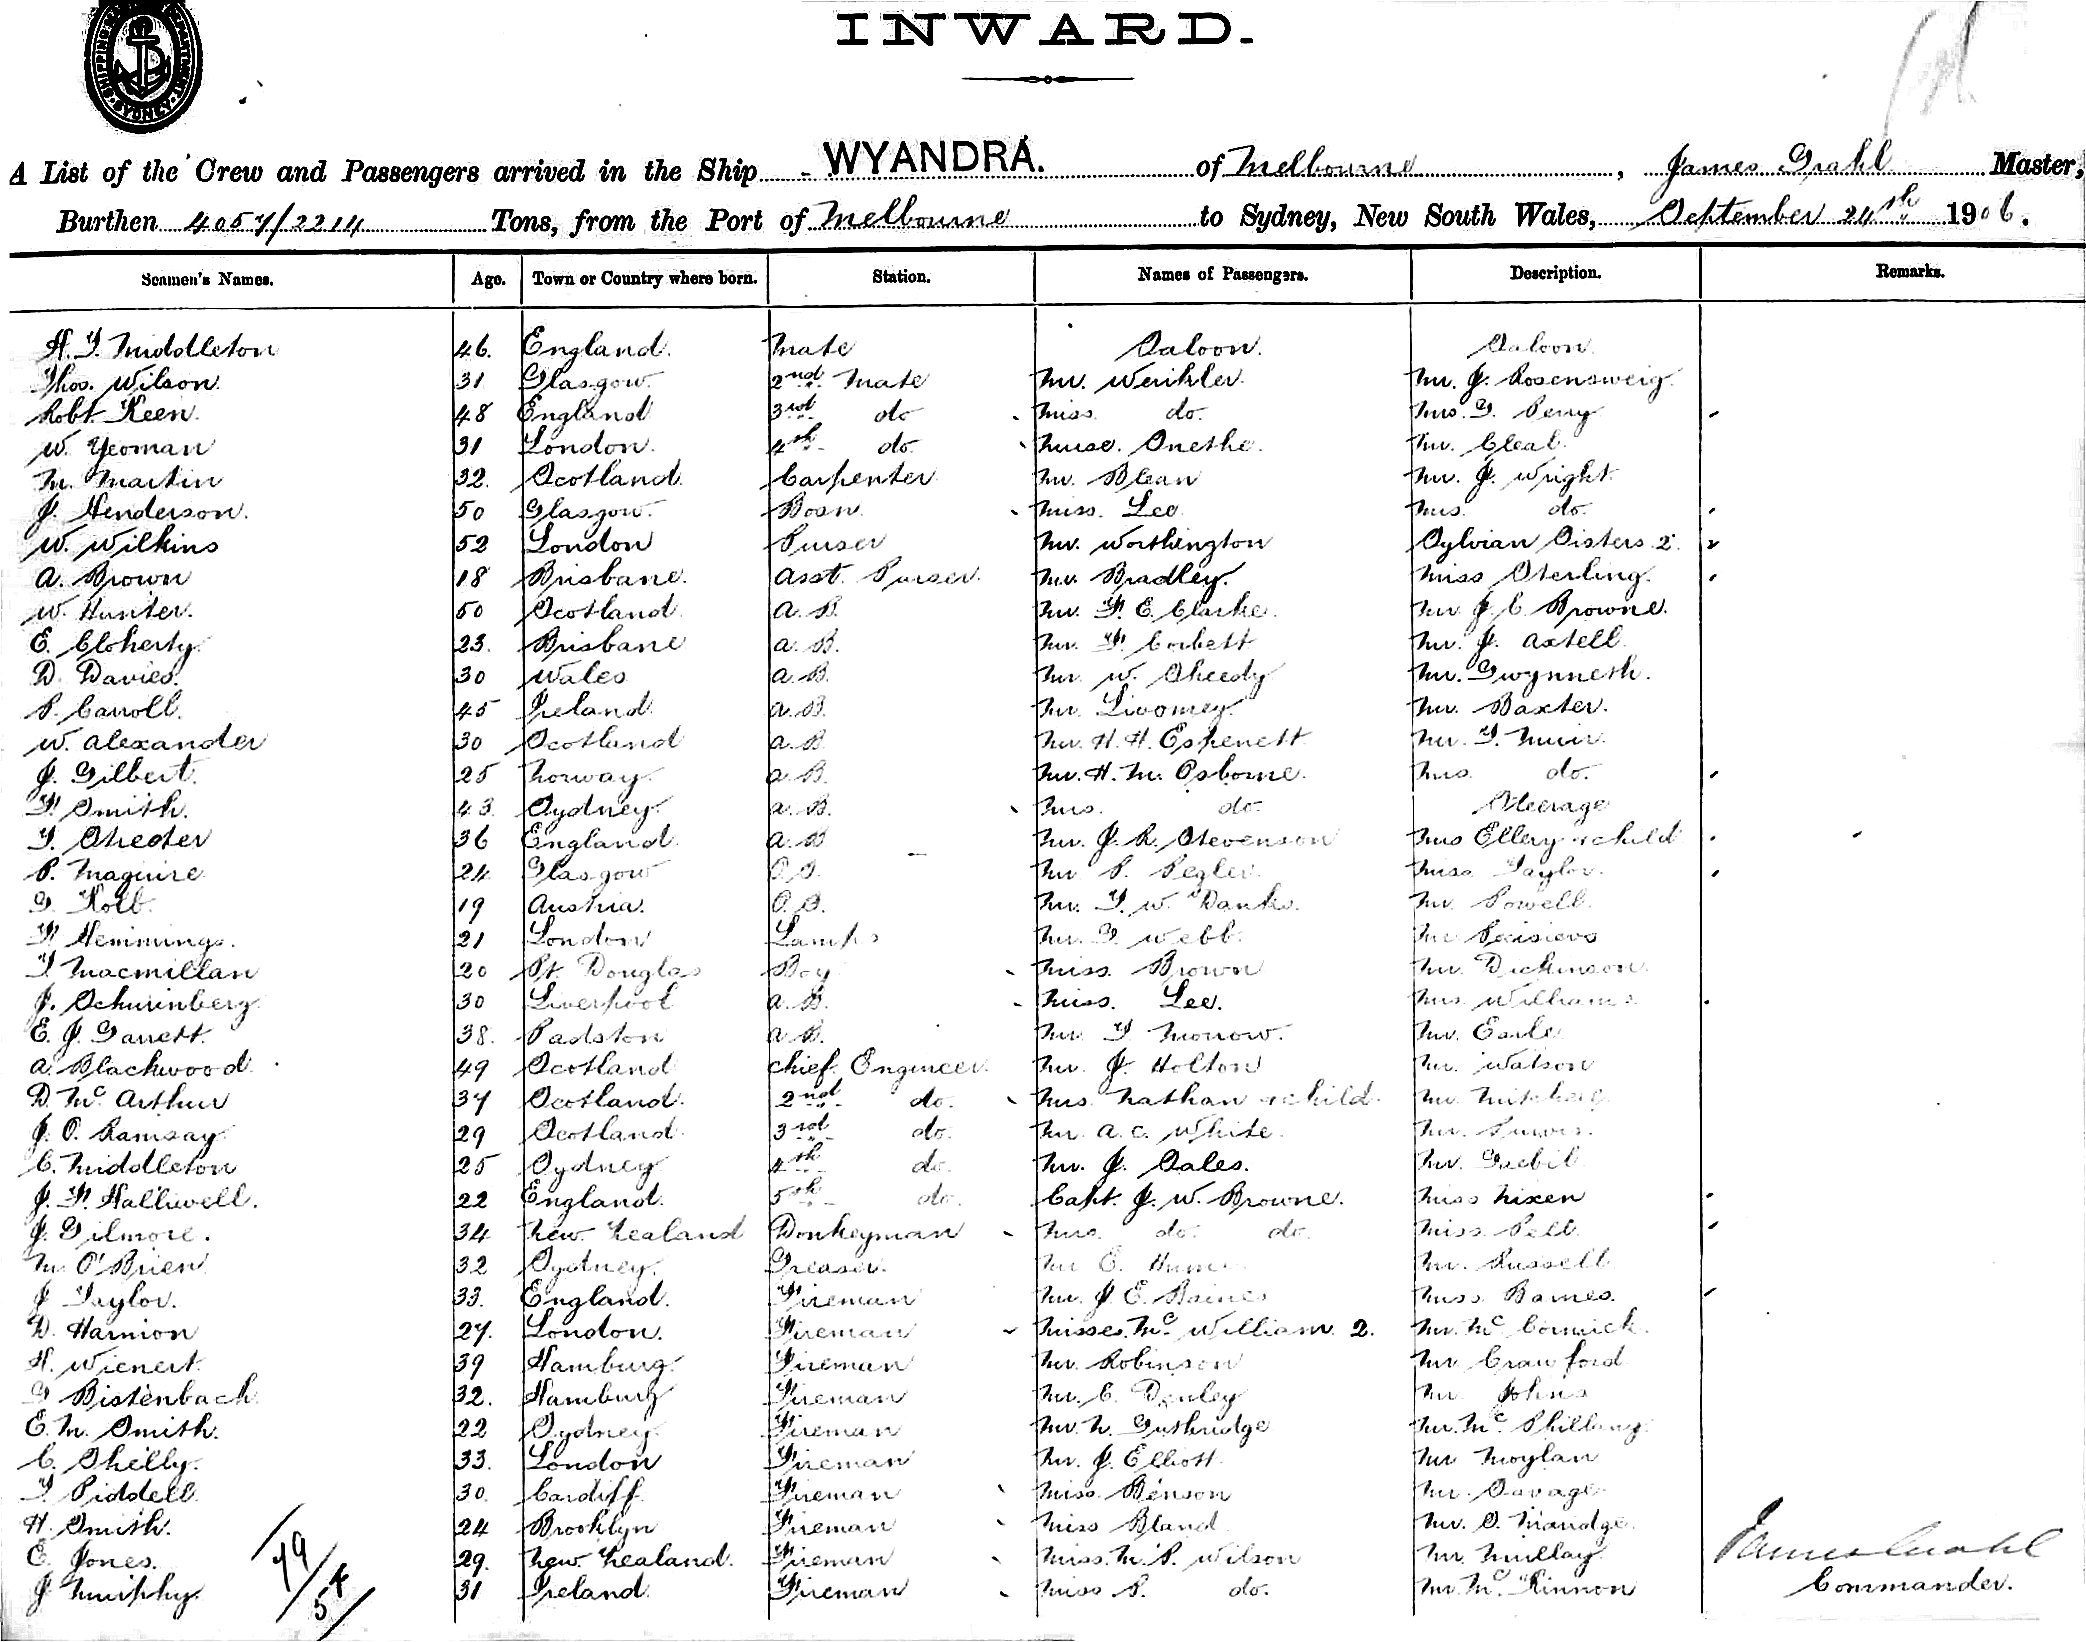 SHIPPING SYDNEY
INWARD.
A List of the Crew and Passengers arrived in the Ship WYANDRA. of Melbourne, James Grahl Master,
Burthen 4057/2214 Tons, from the Port of Melbourne to Sydney, New South Wales, September 24th 1906.
Seamen's Names. Age. Town or Country where born. Station. Names of Passengers. Description. Remarks.
H. T. Middleton 46. England. Mate Saloon. Saloon.
Thos. Wilson. 31 Glasgow. 2nd Mate Mr. Wenkler. Mr. J. Rosensweig.
Robt. Keen. 48 England 3rd do Miss. do. Mrs. G. Perry
W. Yeoman 31 London. 4th do. Nurse. Mr. Cleal.
M. Martin 32. Scotland. Carpenter Mr. Blean Mr. J. Wright.
J. Henderson. 50 Glasgow. Bosn. Miss. Lee. Mrs. do.
W. Wilkins 52 London Purser Mr. Worthington Sylvian Sisters. 2.
A. Brown 18 Brisbane. Asst. Purser. Mr. Bradley. Miss Sterling.
W. Hunter. 50 Scotland. A. B. Mr. F. E. Clarke. Mr J. C. Browne.
E. Cloherty. 23. Brisbane A. B. Mr. F. Corbett Mr. J. Axtell.
D. Davies. 30 Wales A. B. Mr. W. Sheedy Mr. Gwynneth.
P. Carroll. 45 Ireland. A. B. Mr. Mr. Baxter.
W. Alexander 30 Scotland A. B. Mr. H. H. Espenett. Mr. T. Muir.
J. Gilbert. 25 Norway. A. B. Mr. H. M. Osborne. Mrs. do.
F. Smith. 43. Sydney. A. B. Mrs. do. Steerage
T. Shester 36 England. A. B Mr. J. R. Stevenson Mrs Ellery & child
P. Maguire 24 Glasgow O. S. Mr P. Pegler. Miss Taylor.
G. Kolb. 19 Austria. O. S. Mr. T. W. Danks. Mr. Powell.
F. Hemmings. 21 London Lamps Mr. G. Webb. Mr
T. Macmillan 20 Pt. Douglas Boy Miss. Brown Mr. Dickinson.
J. Schurinberg. 30 Liverpool A. B. Miss. Lee. Mrs. Williams.
E. J. Garrett. 38. Padston A. B. Mr. T. Morrow. Mr. Earle
A. Blackwood. 49 Scotland Chief. Engineer. Mr. J. Holton Mr. Watson
D. McArthur 37 Scotland. 2nd do. Mrs. Nathan & child. Mr.
J. S. Ramsay. 29 Scotland. 3rd do. Mr. A. C. White. Mr.
C. Middleton 25 Sydney 4th do. Mr. J. Sales. Mr. Gaebil.
J. F. Halliwell. 22 England. 5th do. Capt. J. W. Browne. Miss Nixen
J. Gilmore. 34 New Zealand Donkeyman Mrs. do. do. Miss. Pell.
M. O'Brien 32 Sydney. Greaser. Mr E. Hume Mr. Russell.
J. Taylor. 33. England. Fireman Mr. J. E. Baines Miss. Barnes.
D. Harnion 27. London. Fireman Misses. McWilliam. 2. Mr. McCormick.
H. Wienert. 39 Hamburg. Fireman Mr. Robinson Mr Crawford
G. Bistenbach 32. Hamburg Fireman Mr. C. Denley Mr Johns
E. M. Smith. 22 Sydney. Fireman Mr. N. Guthridge Mr. McPhillamy.
C. Shelly. 33. London Fireman Mr. J. Elliott. Mr Moylan
T. Piddell. 30. Cardiff. Fireman Miss. Benson Mr. Savage
H. Smith. 24 Brooklyn Fireman Miss Bland Mr. S. Mandge.
E. Jones. 29. New Zealand. Fireman Miss. M. P. Wilson Mr. Mullay. James Grahl
J. Murphy. 31 Ireland. Fireman Miss P. do. Mr. McKinnon Commander.
49/54